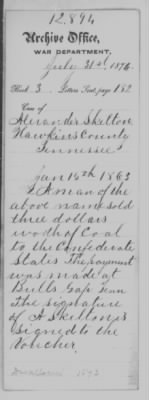 12.894
Archive Office,
WAR DEPARTMENT,
July 31st 1876.
Book 3 Letters Sent, page 182
Case of
Alexander Skelton
Hawkins County
Tennessee
Jan 15th 1863
A man of the
above name sold
three dollars
worth of Coal
to the Confederate
States The payment
was made at
Bulls Gap Tenn
The signature
of A Skelton is
signed to the
Voucher